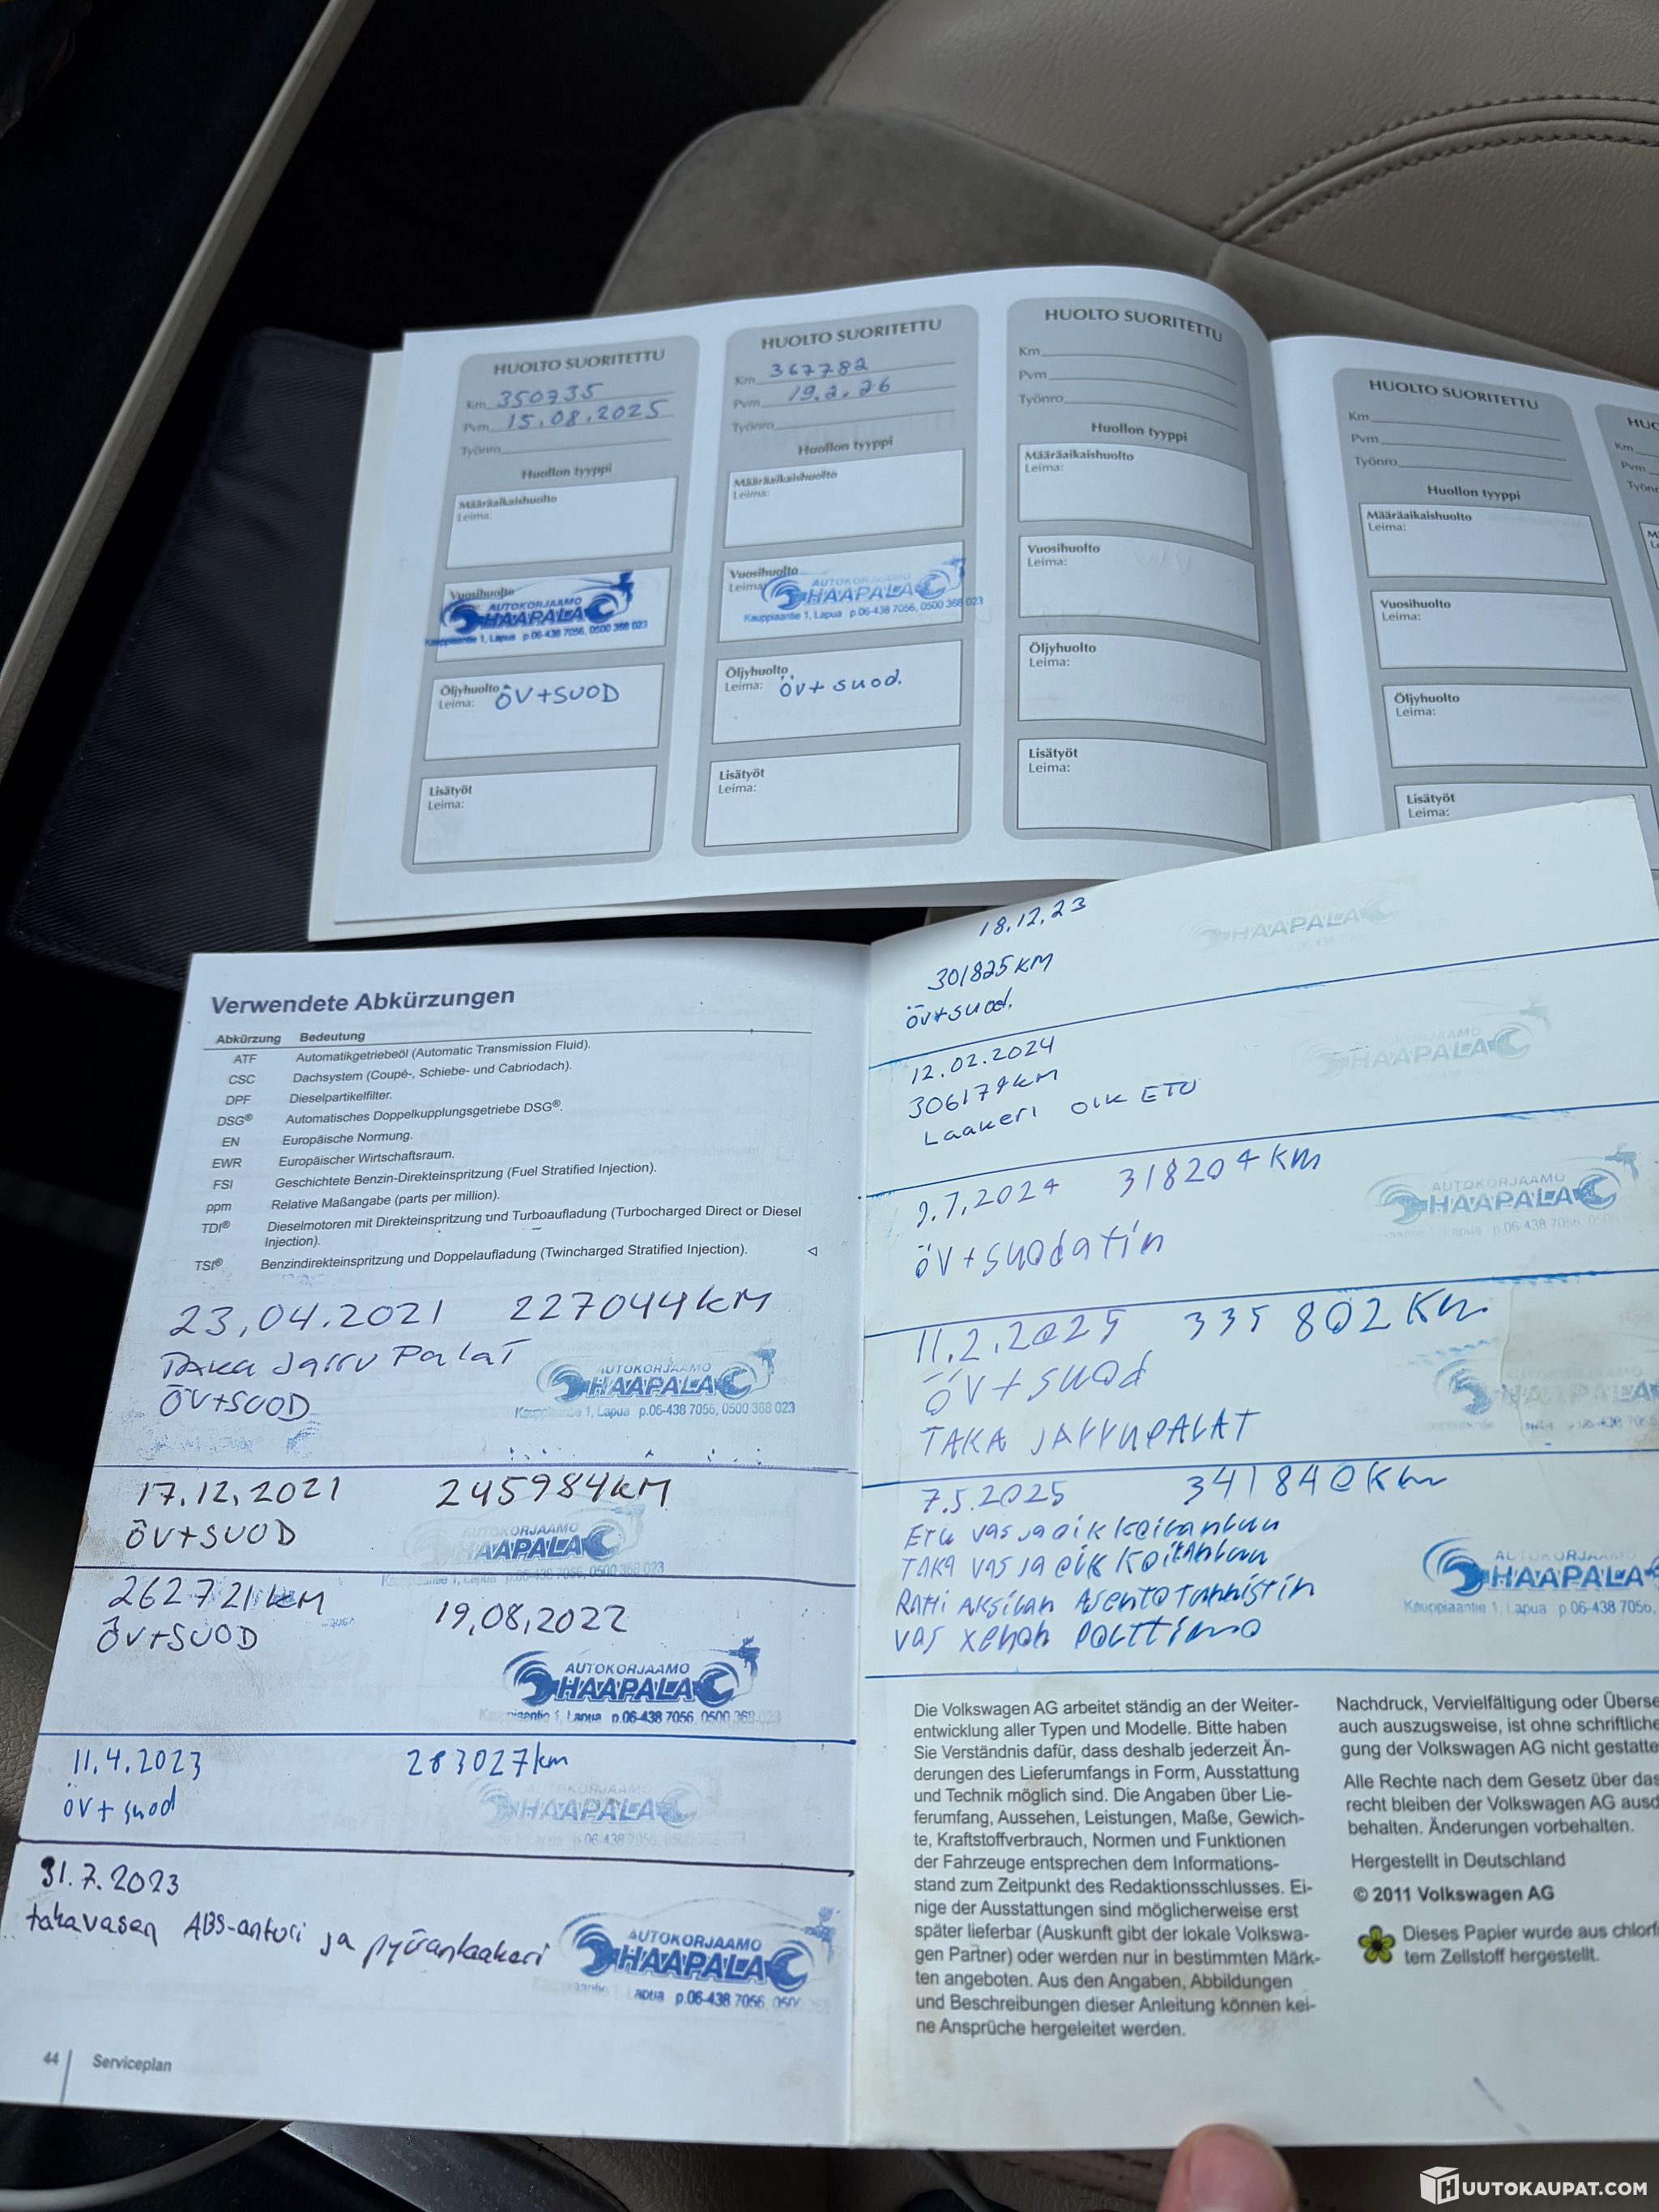 HUOLTO SUORITETTU
Km 350735
Pvm 15.08.2025
Työnro
Huollon tyyppi
Määräaikaishuolto
Leima:
Vuosihuolto
AUTOKORJAAMO
HAAPALA
Kauppiaantie 1, Lapua p.06-438 7056, 0500 368 023
Öljyhuolto
Leima: ÖV+SUOD
Lisätyöt
Leima:
HUOLTO SUORITETTU
Km 367782
Pvm 19.2.26
Työnro
Huollon tyyppi
Määräaikaishuolto
Leima:
Vuosihuolto
Leima:
AUTOKORJAAMO
HAAPALA
Kauppiaantie 1, Lapua p.06-438 7056, 0500 368 023
Öljyhuolto
Leima: öv+suod.
Lisätyöt
Leima:
HUOLTO SUORITETTU
Km
Pvm
Työnro
Huollon tyyppi
Määräaikaishuolto
Leima:
Vuosihuolto
Leima:
Öljyhuolto
Leima:
Lisätyöt
Leima:
HUOLTO SUORITETTU
Km
Pvm
Työnro
Huollon tyyppi
Määräaikaishuolto
Leima:
Vuosihuolto
Leima:
Öljyhuolto
Leima:
Lisätyöt
Leima:
Km
Pvm
Verwendete Abkürzungen
Abkürzung Bedeutung
ATF Automatikgetriebeöl (Automatic Transmission Fluid).
CSC Dachsystem (Coupé-, Schiebe- und Cabriodach).
DPF Dieselpartikelfilter.
DSG® Automatisches Doppelkupplungsgetriebe DSG®.
EN Europäische Normung.
EWR Europäischer Wirtschaftsraum.
FSI Geschichtete Benzin-Direkteinspritzung (Fuel Stratified Injection).
ppm Relative Maßangabe (parts per million).
TDI® Dieselmotoren mit Direkteinspritzung und Turboaufladung (Turbocharged Direct or Diesel
Injection).
TSI® Benzindirekteinspritzung und Doppelaufladung (Twincharged Stratified Injection).
23.04.2021 227044KM
Taka Jarru Palat
ÖV+SUOD
AUTOKORJAAMO
HAAPALA
Kauppiaantie 1, Lapua p.06-438 7056, 0500 368 023
17.12.2021 245984KM
ÖV+SUOD
AUTOKORJAAMO
HAAPALA
262721KM 19.08.2022
ÖV+SUOD
AUTOKORJAAMO
HAAPALA
Kauppiaantie 1, Lapua p.06-438 7056, 0500 368 023
11.4.2023 283027km
öv+suod
AUTOKORJAAMO
HAAPALA
31.7.2023
takavasen ABS-anturi ja pyöränlaakeri
AUTOKORJAAMO
HAAPALA
Lapua p.06-438 7056
44 Serviceplan
18.12.23
301825KM
öv+suod.
HAAPALA
12.02.2024
306179KM
Laakeri OIK ETU
AUTOKORJAAMO
HAAPALA
9.7.2024 318204KM
öV+suodatin
AUTOKORJAAMO
HAAPALA
11.2.2025 335802Km
öV+suod
TAKA JARRUPALAT
HAAPALA
7.5.2025 341840Km
Etu vas ja oik
TAKA vas ja oik
Ratti Akselin Asentotunnistin
vas xenon polttimo
HAAPALA
Kauppiaantie 1, Lapua p.06-438 7056,
Die Volkswagen AG arbeitet ständig an der Weiter-
entwicklung aller Typen und Modelle. Bitte haben
Sie Verständnis dafür, dass deshalb jederzeit Än-
derungen des Lieferumfangs in Form, Ausstattung
und Technik möglich sind. Die Angaben über Lie-
ferumfang, Aussehen, Leistungen, Maße, Gewich-
te, Kraftstoffverbrauch, Normen und Funktionen
der Fahrzeuge entsprechen dem Informations-
stand zum Zeitpunkt des Redaktionsschlusses. Ei-
nige der Ausstattungen sind möglicherweise erst
später lieferbar (Auskunft gibt der lokale Volkswa-
gen Partner) oder werden nur in bestimmten Märk-
ten angeboten. Aus den Angaben, Abbildungen
und Beschreibungen dieser Anleitung können kei-
ne Ansprüche hergeleitet werden.
Nachdruck, Vervielfältigung oder Überse
auch auszugsweise, ist ohne schriftliche
gung der Volkswagen AG nicht gestatte
Alle Rechte nach dem Gesetz über das
recht bleiben der Volkswagen AG ausd
behalten. Änderungen vorbehalten.
Hergestellt in Deutschland
© 2011 Volkswagen AG
Dieses Papier wurde aus chlorf
tem Zellstoff hergestellt.
HUUTOKAUPAT.COM